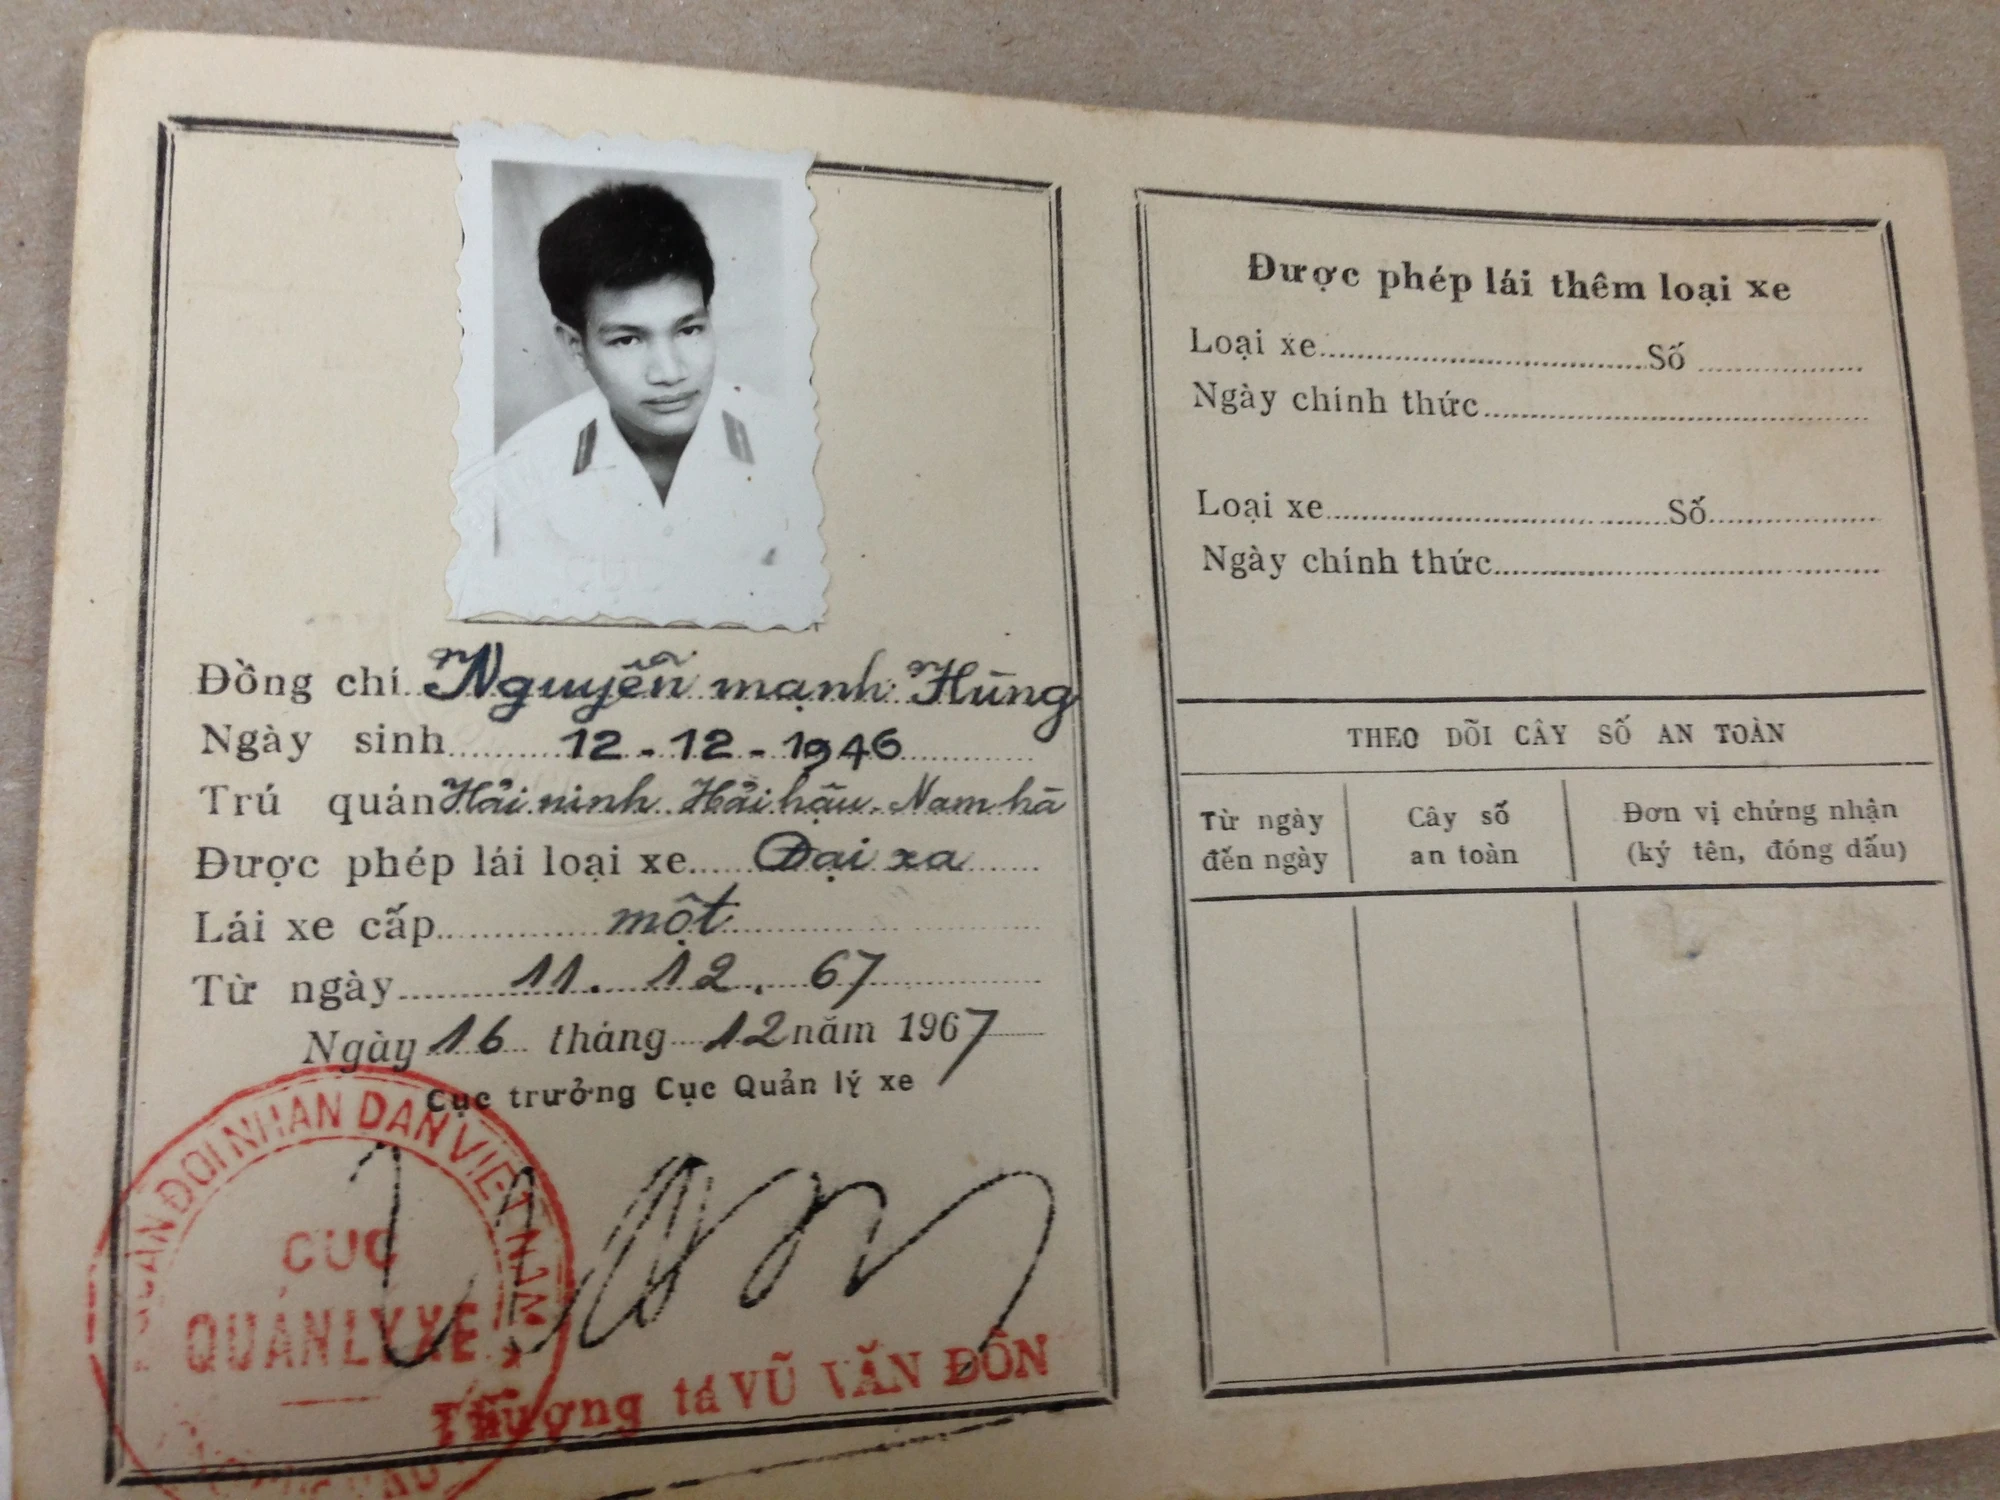 Đồng chí Nguyễn mạnh Hùng
Ngày sinh 12-12-1946
Trú quán Hải ninh Hải hậu - Nam hà
Được phép lái loại xe Đại xa
Lái xe cấp một
Từ ngày 11. 12. 67
Ngày 16 tháng 12 năm 1967
Cục trưởng Cục Quản lý xe
QUÂN ĐỘI NHÂN DÂN VIỆT NAM
CỤC
QUẢN LÝ XE
Thượng tá VŨ VĂN ĐÔN
Được phép lái thêm loại xe
Loại xe Số
Ngày chính thức
Loại xe Số
Ngày chính thức
THEO DÕI CÂY SỐ AN TOÀN
Từ ngày đến ngày
Cây số an toàn
Đơn vị chứng nhận (ký tên, đóng dấu)